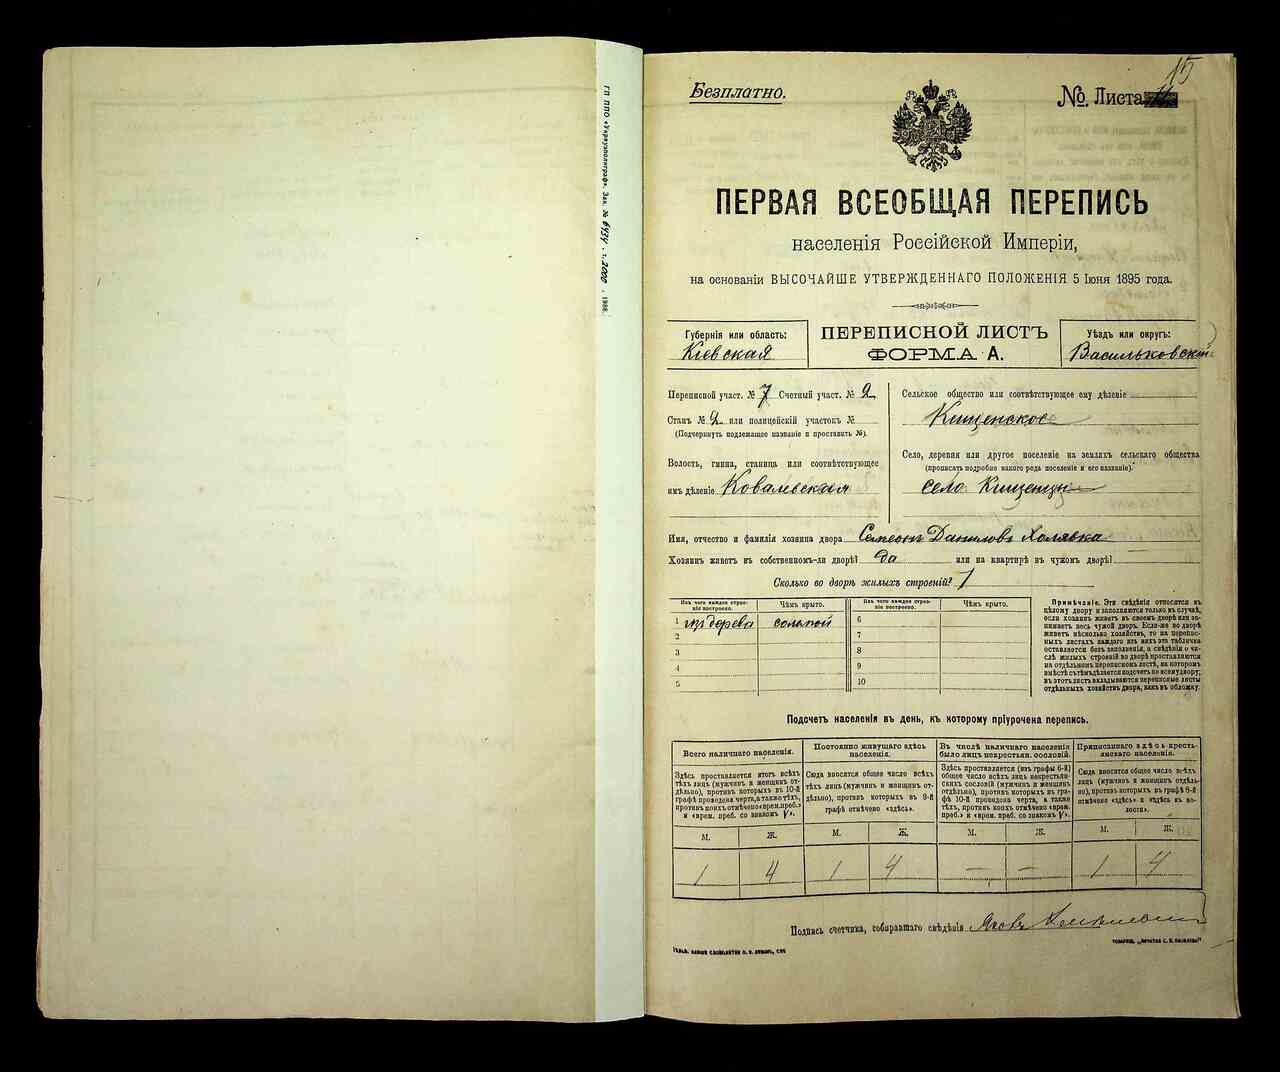 ГП ППО «Укрвузполиграф». Зак. № 6434. т. 2000. 1988.
15
Безплатно.
№. Листа
ПЕРВАЯ ВСЕОБЩАЯ ПЕРЕПИСЬ
населенія Россійской Имперіи,
на основаніи ВЫСОЧАЙШЕ УТВЕРЖДЕННАГО ПОЛОЖЕНІЯ 5 Іюня 1895 года.
Губернія или область:
Кіевская
ПЕРЕПИСНОЙ ЛИСТЪ
ФОРМА А.
Уѣздъ или округъ:
Васильковскій
Переписной участ. № 7 Счетный участ. № 2
Станъ № 2 или полицейскій участокъ №
(Подчеркнуть подлежащее названіе и проставить №).
Волость, гмина, станица или соотвѣтствующее
имъ дѣленіе Ковалевская
Сельское общество или соотвѣтствующее ему дѣленіе
Кищенское
Село, деревня или другое поселеніе на земляхъ сельскаго общества
(прописать подробно какого рода поселеніе и его названіе).
село Кищенцы
Имя, отчество и фамилія хозяина двора Семеонъ Даниловъ Холявка
Хозяинъ живетъ въ собственномъ-ли дворѣ? да или на квартирѣ въ чужомъ дворѣ? —
Сколько во дворѣ жилыхъ строеній? 1
Изъ чего каждое строеніе построено.
Чѣмъ крыто.
Изъ чего каждое строеніе построено.
Чѣмъ крыто.
1 изъ дерева соломой 6
2 7
3 8
4 9
5 10
Примѣчаніе. Эти свѣдѣнія относятся къ
цѣлому двору и заполняются только въ случаѣ,
если хозяинъ живетъ въ своемъ дворѣ или занимаетъ
весь чужой дворъ. Если-же во дворѣ
живетъ нѣсколько хозяйствъ, то на переписныхъ
листахъ каждаго изъ нихъ эта табличка
оставляется безъ заполненія, а свѣдѣнія о числѣ
жилыхъ строеній во дворѣ проставляются
на отдѣльномъ переписномъ листѣ, на которомъ
вмѣстѣ съ тѣмъ дѣлается подсчетъ по всему двору;
въ этотъ листъ вкладываются переписные листы
отдѣльныхъ хозяйствъ двора, какъ въ обложку.
Подсчетъ населенія въ день, къ которому пріурочена перепись.
Всего наличнаго населенія.
Здѣсь проставляется итогъ всѣхъ
тѣхъ лицъ (мужчинъ и женщинъ отдѣльно),
противъ которыхъ въ 10-й
графѣ проведена черта, а также тѣхъ,
противъ коихъ отмѣчено «врем. преб.»
и «врем. преб. со знакомъ V».
Постоянно живущаго здѣсь
населенія.
Сюда вносятся общее число всѣхъ
тѣхъ лицъ (мужчинъ и женщинъ отдѣльно),
противъ которыхъ въ 9-й
графѣ отмѣчено «здѣсь».
Въ числѣ наличнаго населенія
было лицъ некрестьян. сословій.
Здѣсь проставляется (изъ графы 6-й)
общее число всѣхъ лицъ некрестьянскихъ
сословій (мужчинъ и женщинъ
отдѣльно), противъ которыхъ въ графѣ
10-й проведена черта, а также
тѣхъ, противъ коихъ отмѣчено «врем.
преб.» и «врем. преб. со знакомъ V».
Приписаннаго здѣсь крестьянскаго
населенія.
Сюда вносятся общее число всѣхъ
лицъ (мужчинъ и женщинъ отдѣльно),
противъ которыхъ въ графѣ 8-й
отмѣчено «здѣсь» и «здѣсь въ волости».
М. Ж. М. Ж. М. Ж. М. Ж.
1 4 1 4 — — 1 4
Подпись счетчика, собиравшаго свѣдѣнія Яковъ